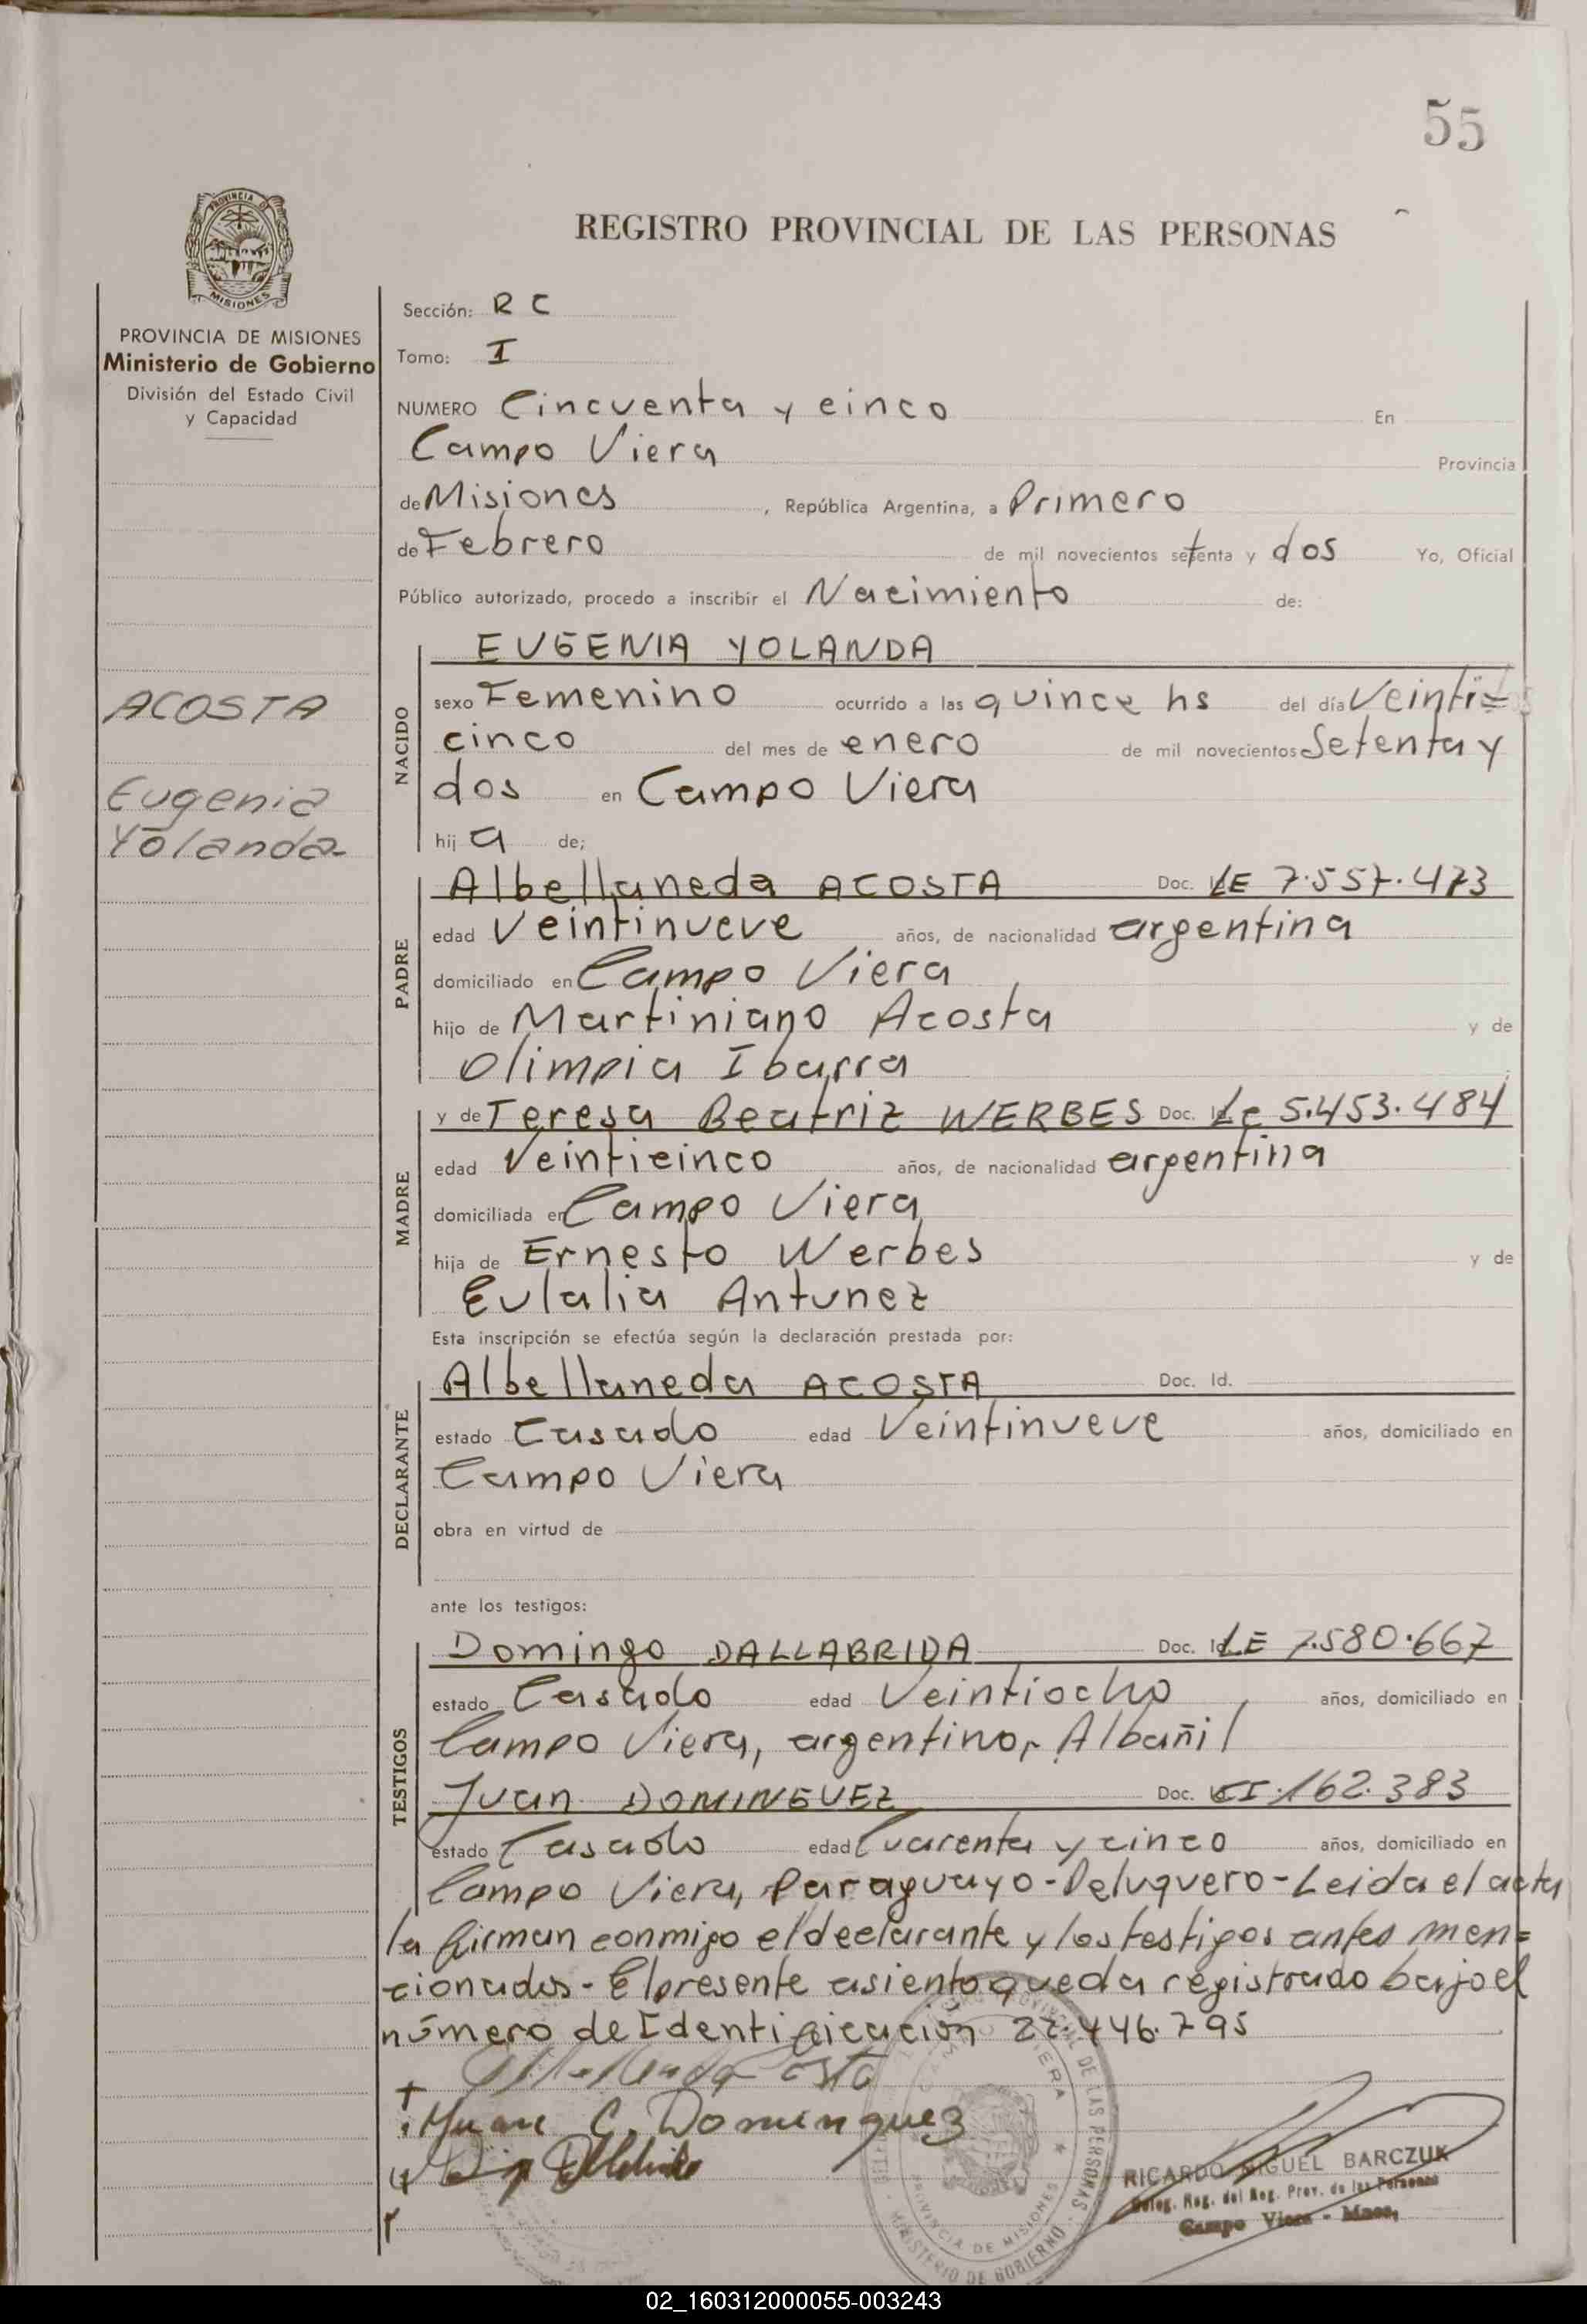 55
PROVINCIA DE
MISIONES
PROVINCIA DE MISIONES
Ministerio de Gobierno
División del Estado Civil
y Capacidad
ACOSTA
Eugenia
Yolanda
REGISTRO PROVINCIAL DE LAS PERSONAS
Sección: R C
Tomo: I
NUMERO Cincuenta y cinco En
Campo Viera Provincia
de Misiones, República Argentina, a Primero
de Febrero de mil novecientos setenta y dos Yo, Oficial
Público autorizado, procedo a inscribir el Nacimiento de:
NACIDO
EUGENIA YOLANDA
sexo Femenino ocurrido a las quince hs del día Veinti=
cinco del mes de enero de mil novecientos Setenta y
dos en Campo Viera
hij a de;
PADRE
Albellaneda ACOSTA Doc. LE 7.557.473
edad Veintinueve años, de nacionalidad argentina
domiciliado en Campo Viera
hijo de Martiniano Acosta y de
Olimpia Ibarra
MADRE
y de Teresa Beatriz WERBES Doc. Lc 5.453.484
edad Veinticinco años, de nacionalidad argentina
domiciliada en Campo Viera
hija de Ernesto Werbes y de
Eulalia Antunez
Esta inscripción se efectúa según la declaración prestada por:
DECLARANTE
Albellaneda ACOSTA Doc. Id.
estado Casado edad Veintinueve años, domiciliado en
Campo Viera
obra en virtud de
ante los testigos:
TESTIGOS
Domingo DALLABRIDA Doc. Id LE 7.580.667
estado Casado edad Veintiocho años, domiciliado en
Campo Viera, argentino, Albañil
Juan DOMINGUEZ Doc. CI.162.383
estado Casado edad Cuarenta y cinco años, domiciliado en
Campo Viera, Paraguayo - Peluquero - Leida el acta
la firman conmigo el declarante y los testigos antes men=
cionados - El presente asiento queda registrado bajo el
número de Identificación 22.446.795
Juan C. Dominguez
PROVINCIA DE MISIONES
MINISTERIO DE GOBIERNO
RICARDO MIGUEL BARCZUK
Deleg. Reg. del Reg. Prov. de las Personas
Campo Viera - Mnes,
02_160312000055-003243